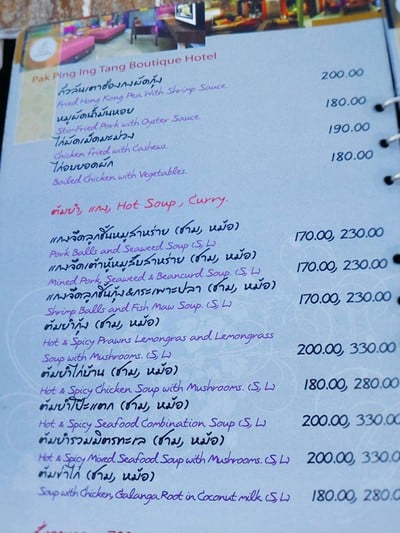 Pak Ping Ing Tang Boutique Hotel
ถั่วลันเตาฮ่องกงผัดกุ้ง 200.00
Fried Hong Kong Pea With Shrimp Sauce
หมูผัดน้ำมันหอย 180.00
Stir-Fried Pork with Oyster Sauce
ไก่ผัดเม็ดมะม่วง 190.00
Chicken fried with Cashews.
ไก่อบยอดผัก 180.00
Boiled Chicken with Vegetables.
ต้มยำ, แกง, Hot Soup, Curry.
แกงจืดลูกชิ้นหมูสาหร่าย (ชาม, หม้อ) 170.00, 230.00
Pork Balls and Seaweed Soup (S, L)
แกงจืดเต้าหู้หมูสับสาหร่าย (ชาม, หม้อ) 170.00, 230.00
Mined Pork, Seaweed & Beancurd Soup. (S, L)
แกงจืดลูกชิ้นกุ้ง&กระเพาะปลา (ชาม, หม้อ) 170.00, 230.00
Shrimp Balls and Fish Maw Soup. (S, L)
ต้มยำกุ้ง (ชาม, หม้อ)
Hot & Spicy Prawns Lemongras and Lemongrass
Soup with Mushrooms. (S, L) 200.00, 330.00
ต้มยำไก่บ้าน (ชาม, หม้อ)
Hot & Spicy Chicken Soup with Mushrooms. (S, L) 180.00, 280.00
ต้มยำโป๊ะแตก (ชาม, หม้อ)
Hot & Spicy Seafood Combination Soup (S, L) 200.00, 330.00
ต้มยำรวมมิตรทะเล (ชาม, หม้อ)
Hot & Spicy Mixed Seafood Soup with Mushrooms. (S, L) 200.00, 330.0
ต้มข่าไก่ (ชาม, หม้อ)
Soup with Chicken, Galanga Root in Coconut milk (S, L) 180.00, 280.0